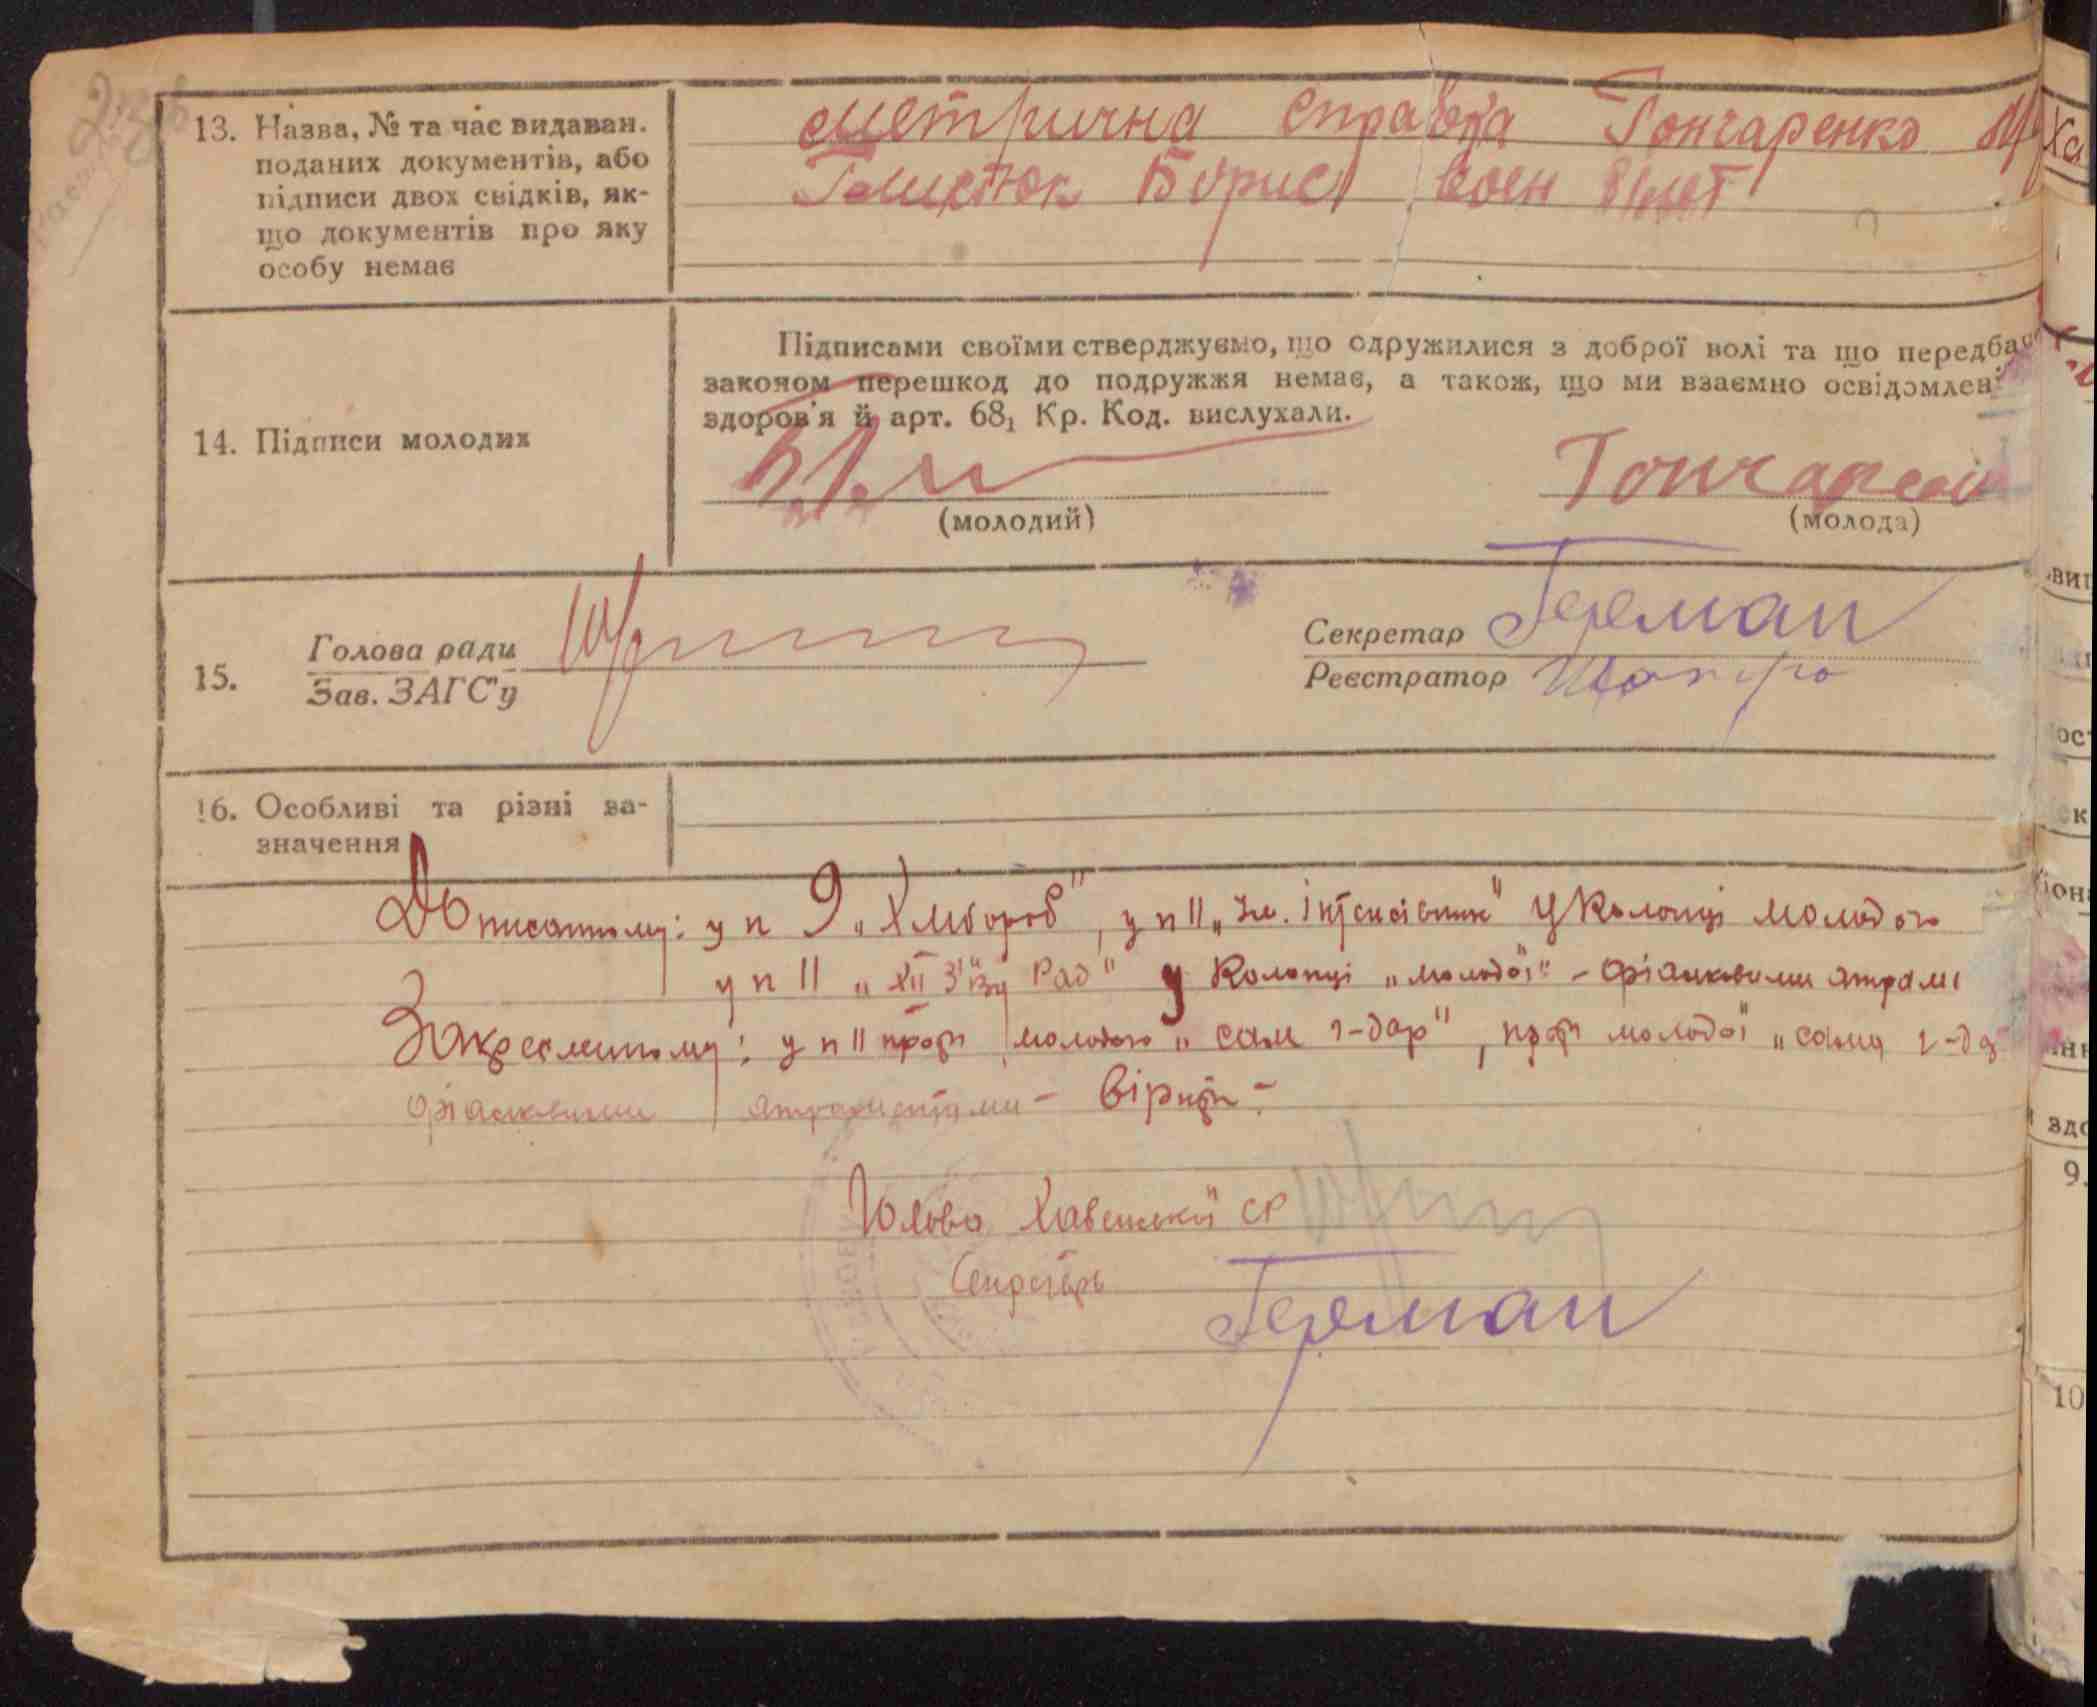 13. Назва, № та час видаван.
поданих документів, або
підписи двох свідків, як-
що документів про яку
особу немає
метрична справка Гончаренко М
Борис воен билет
Підписами своїми стверджуємо, що одружилися з доброї волі та що передба
законом перешкод до подружжя немає, а також, що ми взаємно освідомлені
здоров'я й арт. 68, Кр. Код. вислухали.
14. Підписи молодих
Гончарен
(молодий) (молода)
15. Голова ради
Зав. ЗАГС'у
Секретар Герман
Реєстратор Шапіро
16. Особливі та різні за-
значення
Дописанному: у п 9 „Хлібороб", у п 11 „ у колонці молодого
у п 11 „XII З'їзду Рад" у колонці „молодої" – фіалковими атрамі
Закресленному: у п 11 проти молодого „сам г-дар", проти молодої „сама г-да
фіалковими атраментами – вірити –
Голова СР
Секретарь Герман